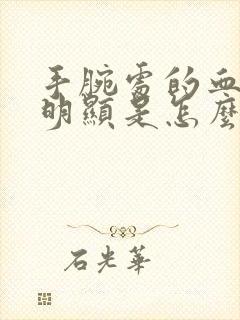 手腕處的血
明顯是怎麼
石光華